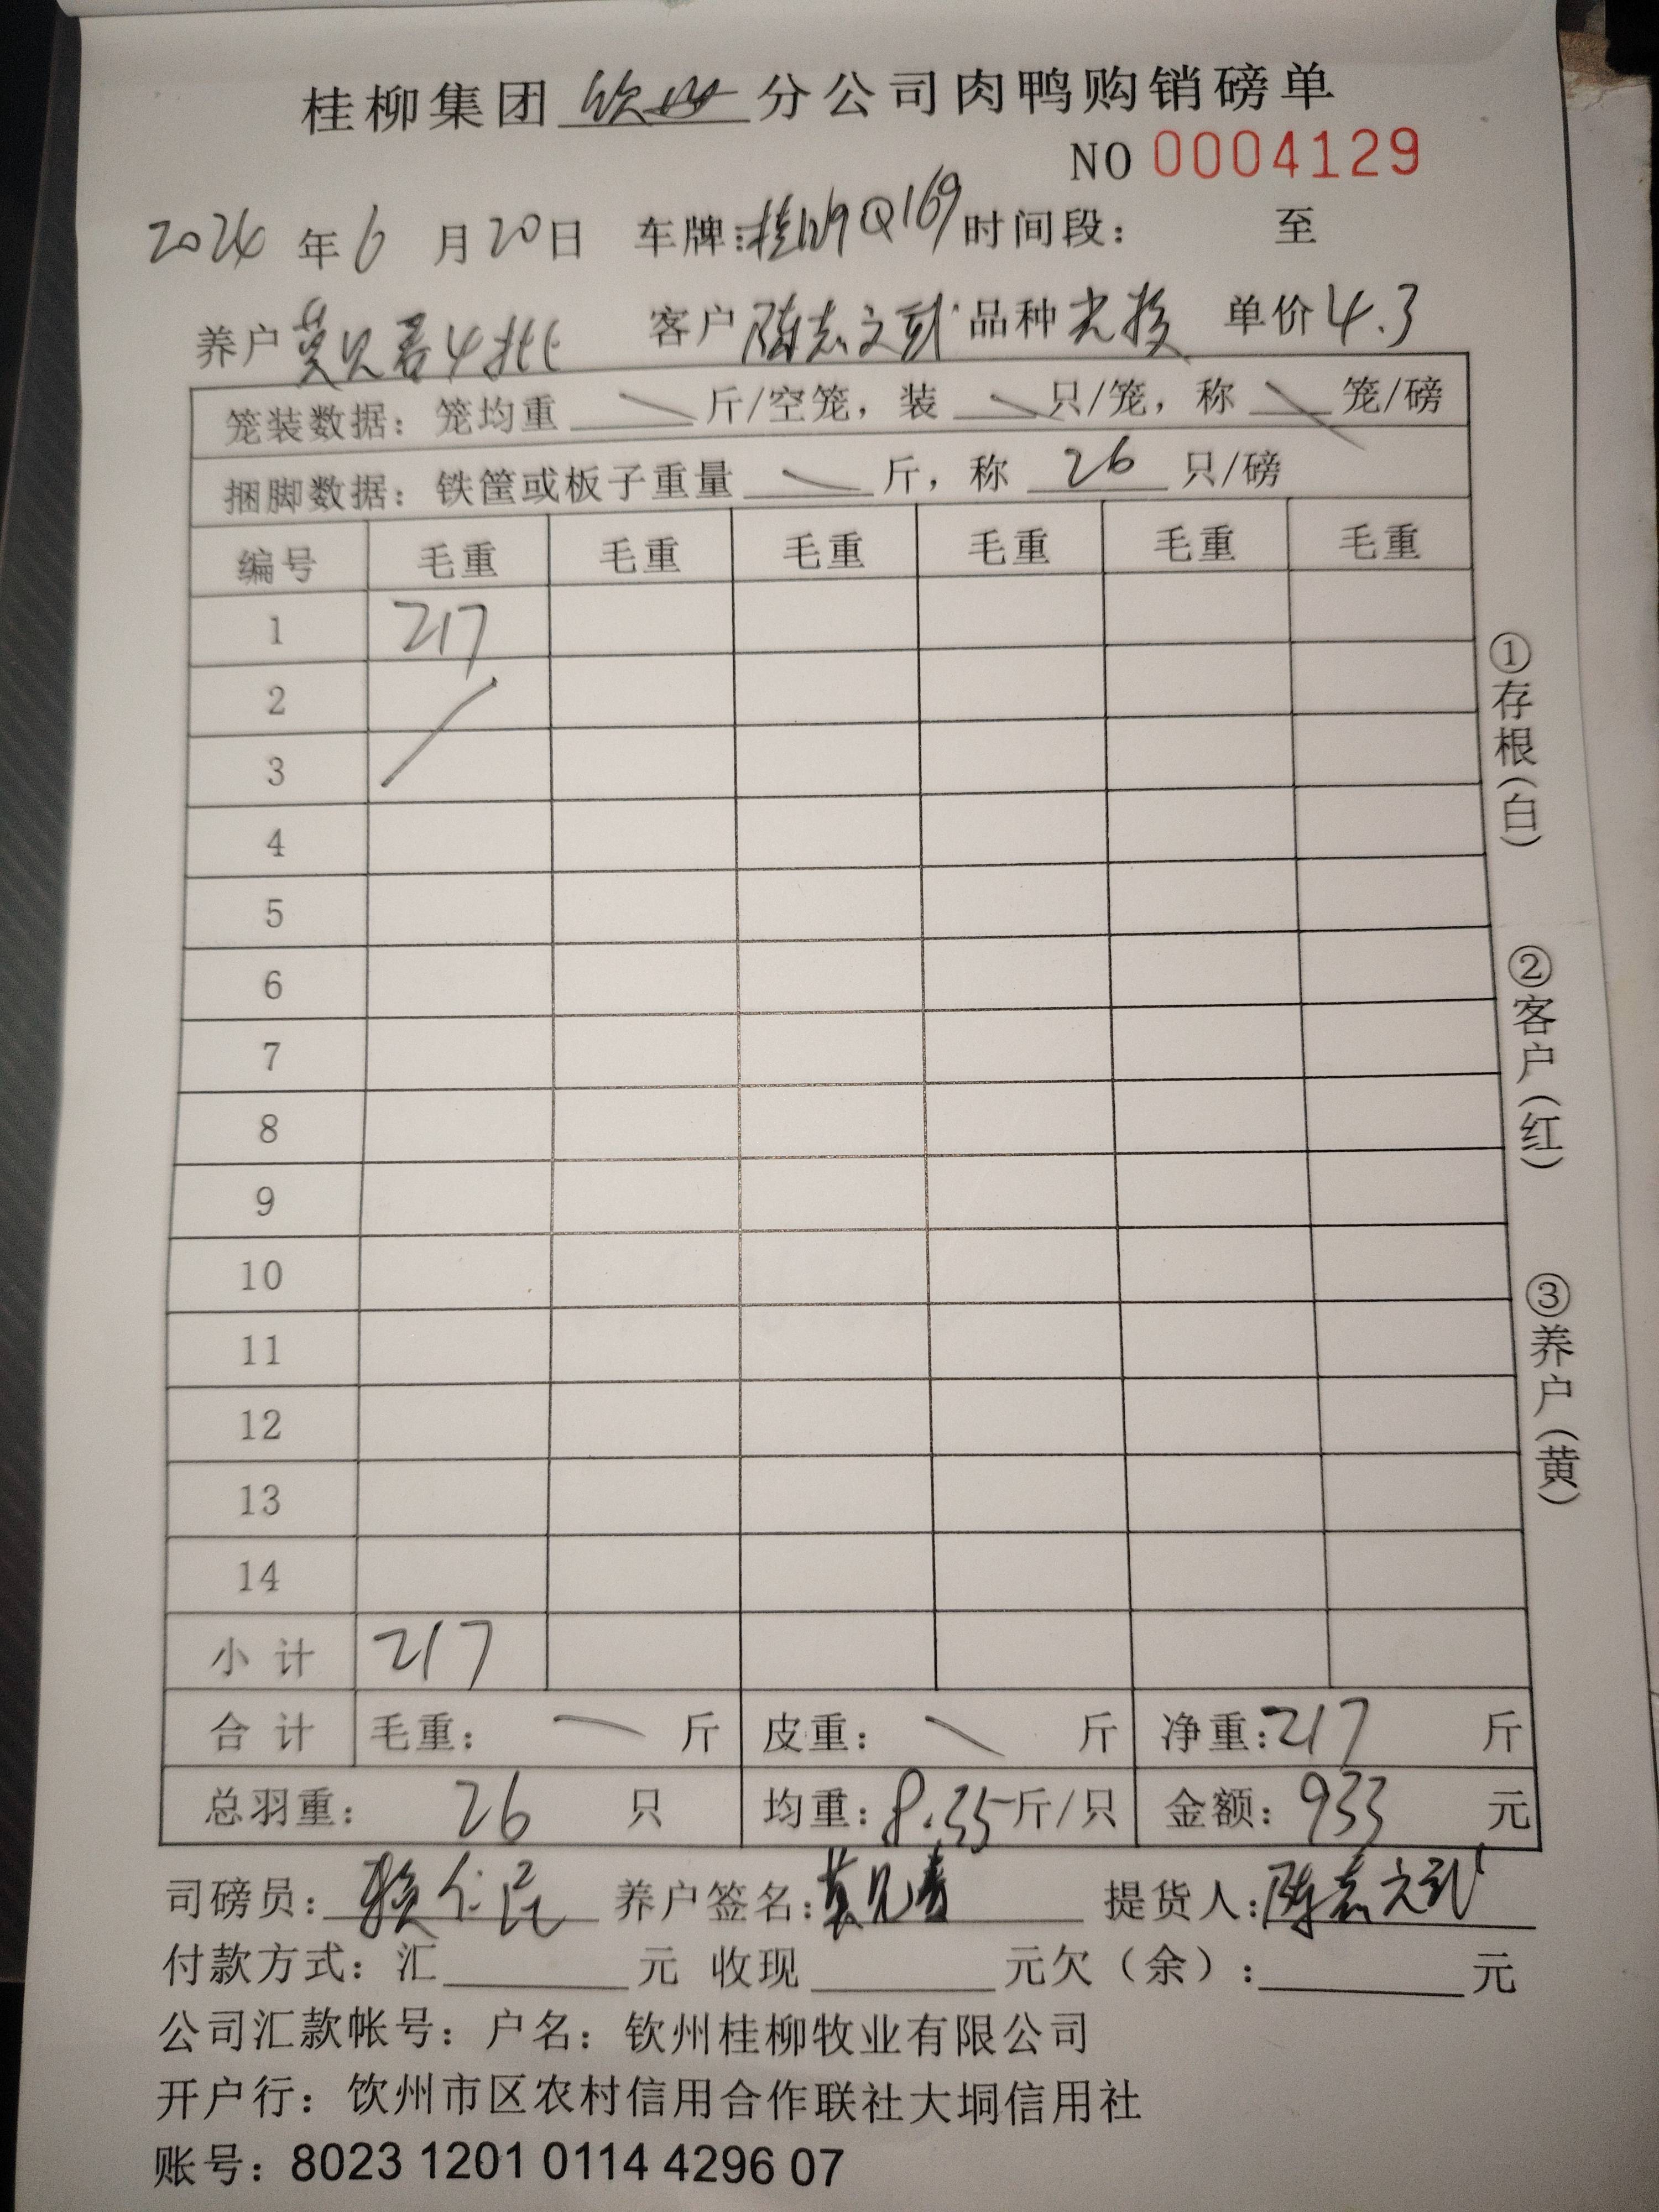 桂柳集团 钦州 分公司肉鸭购销磅单
NO 0004129
2024 年 6 月 20 日 车牌: 桂N9Q169 时间段: 至
养户 莫 4批 客户 陈志文 品种 单价 4.3
笼装数据: 笼均重 斤/空笼, 装 只/笼, 称 笼/磅
捆脚数据: 铁筐或板子重量 斤, 称 26 只/磅
编号 毛重 毛重 毛重 毛重 毛重 毛重
1 217
2
3
4
5
6
7
8
9
10
11
12
13
14
小计 217
合计 毛重: 斤 皮重: 斤 净重: 217 斤
总羽重: 26 只 均重: 8.35 斤/只 金额: 933 元
司磅员: 养户签名: 莫 提货人: 陈志文
付款方式: 汇 元 收现 元欠(余): 元
公司汇款帐号: 户名: 钦州桂柳牧业有限公司
开户行: 钦州市区农村信用合作联社大垌信用社
账号: 8023 1201 0114 4296 07
①存根(白)
②客户(红)
③养户(黄)